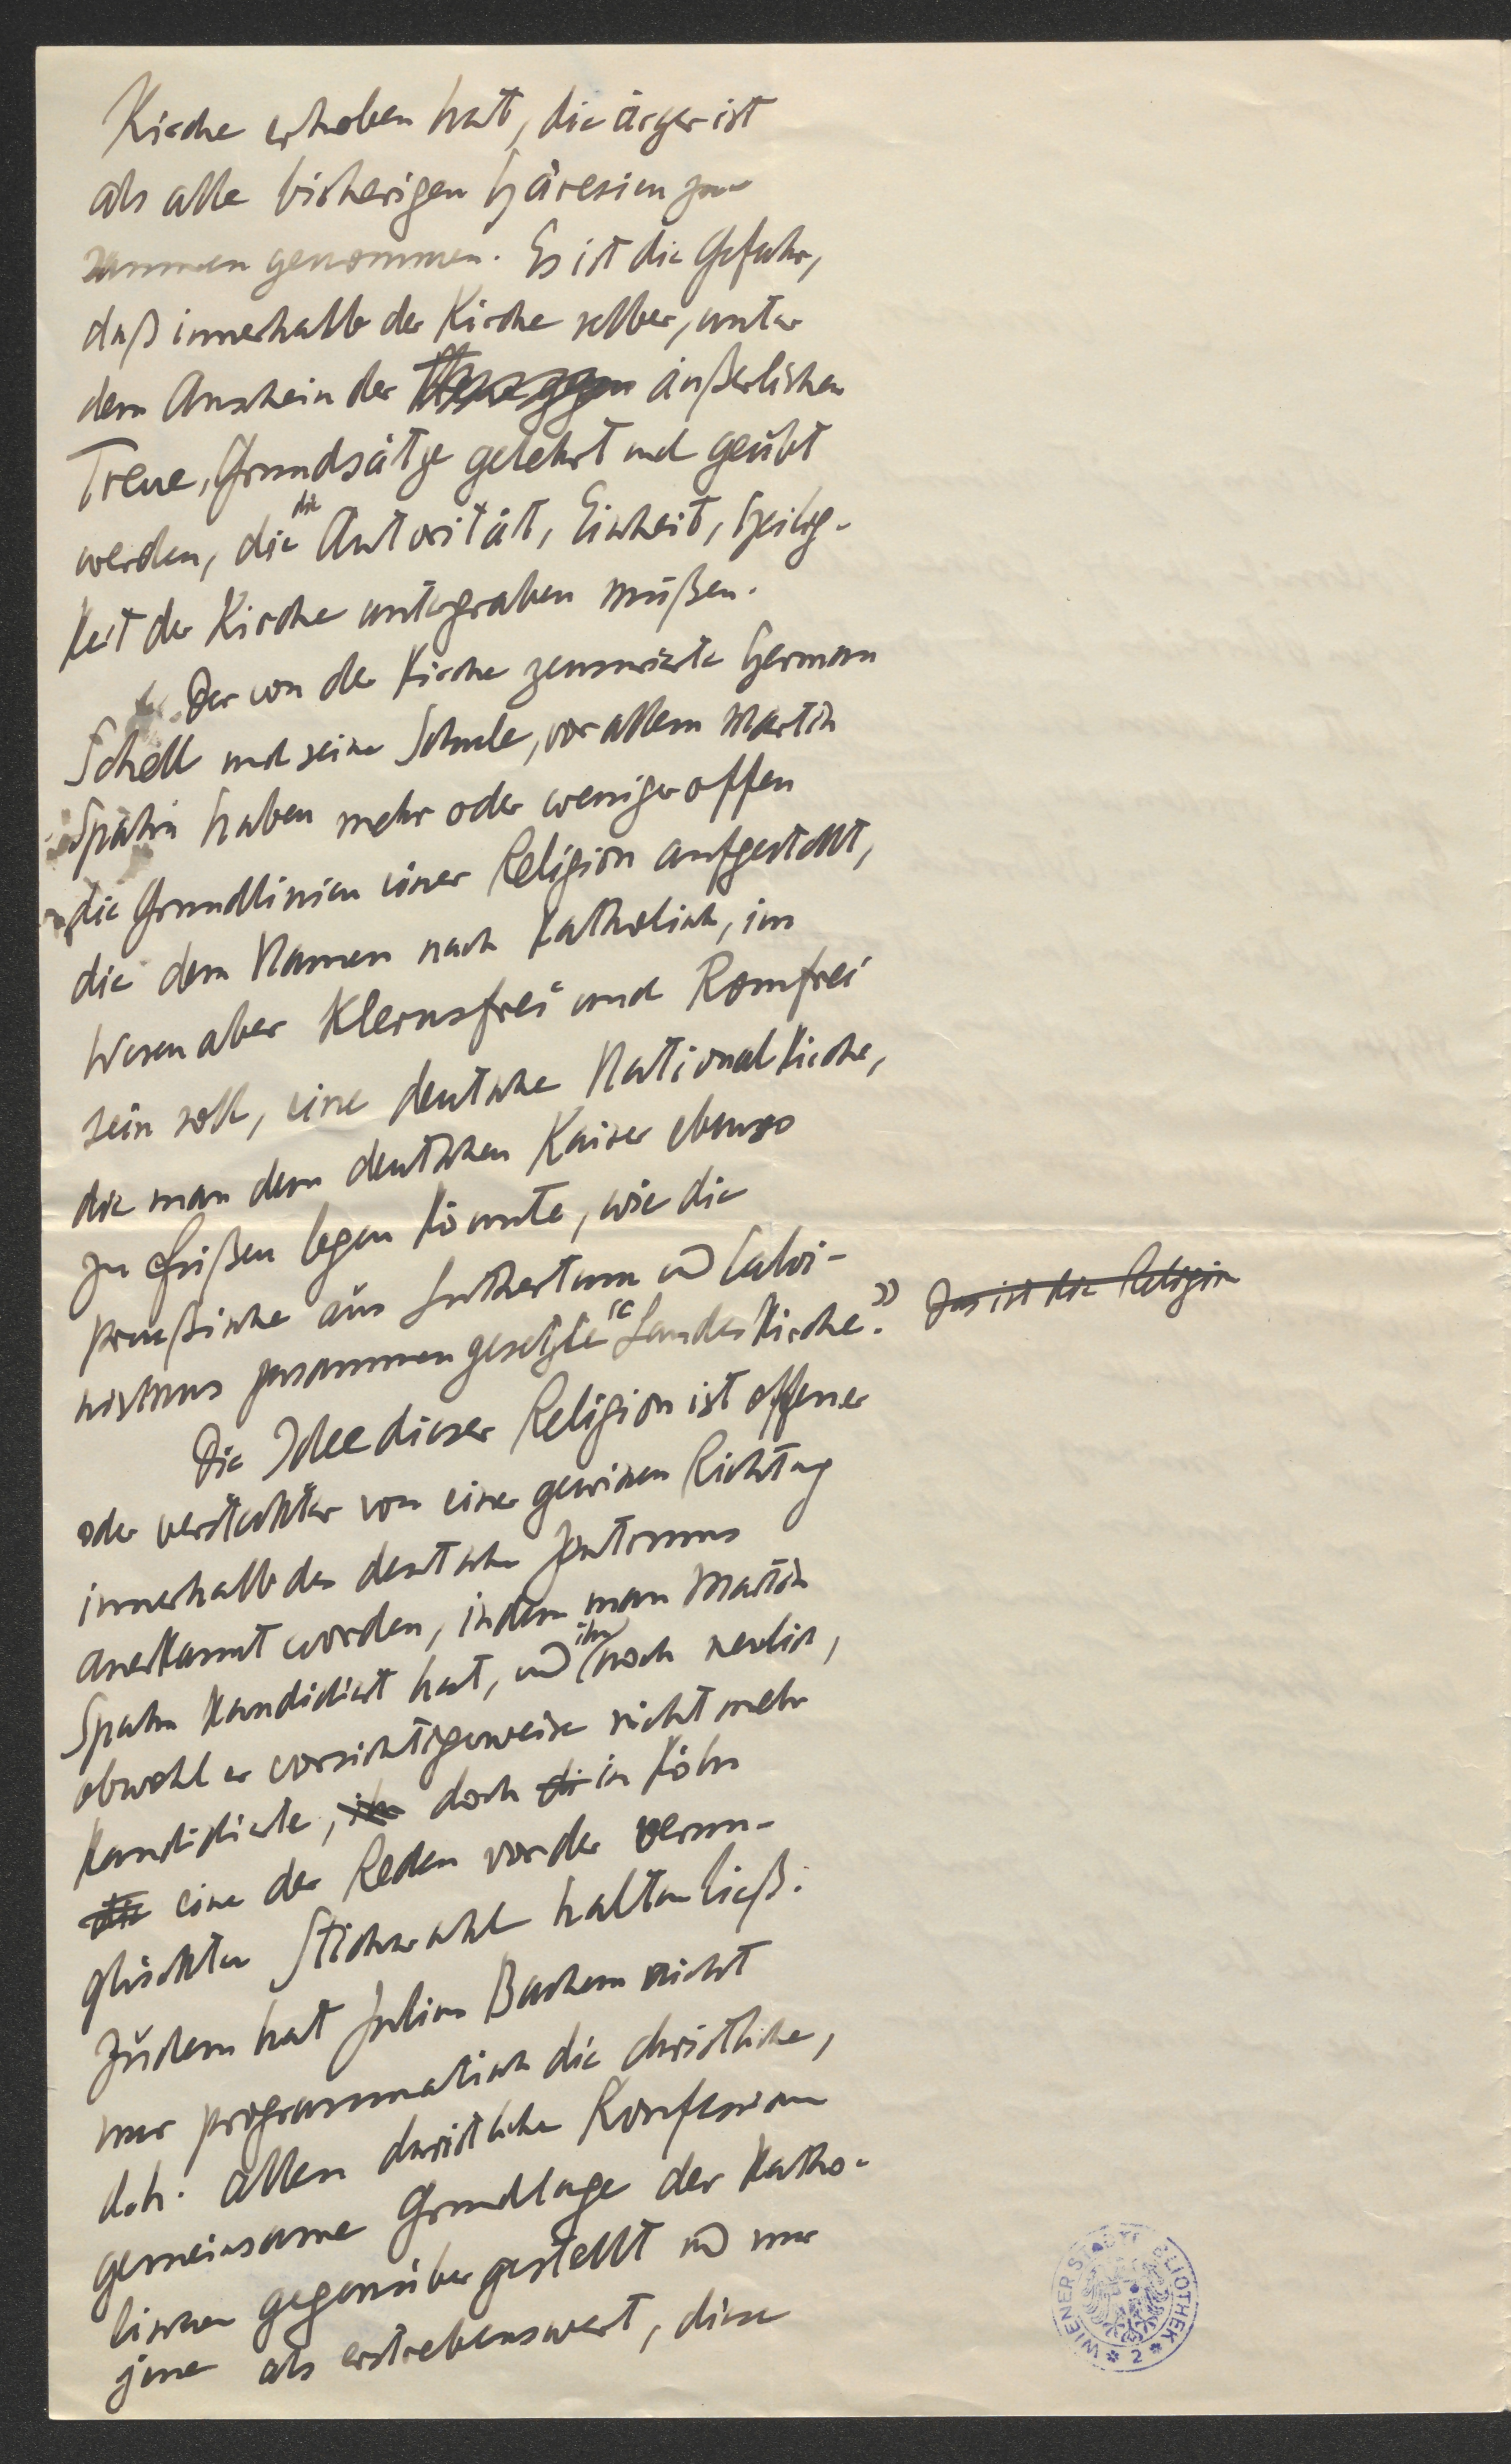 Kirche erhoben hat, die ärger ist
als alle bisherigen Häresien zu-
sammen genommen. Es ist die Gefahr,
daß innerhalb der Kirche selber, unter
dem Anschein der äußerlichen
Treue, Grundsätze gelehrt und geübt
werden, die die Autorität, Einheit, Heilig-
keit der Kirche untergraben müßen.
Der von der Kirche zensurierte Herman
Schell und seine Schule, vor allem Martin
Spahn haben mehr oder weniger offen
die Grundlinien einer Religion aufgestellt,
die dem Namen nach Katholisch, im
Wesen aber Klerusfrei und Romfrei
sein soll, eine deutsche Nationalkirche,
die man dem deutschen Kaiser ebenso
zu Füßen legen könnte, wie die
preußische aus Luthertum und Calvi-
nismus zusammengesetzte "Landeskirche." Das ist die Religion
Die Idee dieser Religion ist offener
oder versteckter von einer gewissen Richtung
innerhalb des deutschen Zentrums
anerkannt worden, indem man Martin
Spahn kandidiert hat, und ihn noch neulich,
obwohl er vorsichtigerweise nicht mehr
kandidierte, ihn doch di in Köln
die eine der Reden vor der verun-
glückten Stichwahl halten ließ.
Zudem hat Julius Bachem nicht
nur programmatisch die christliche,
d.h. allen christlichen Konfessionen
gemeinsame Grundlage der katho-
lischen gegenübergestellt und nur
jene als erstrebenswert, diese
WIENER STADTBIBLIOTHEK
2